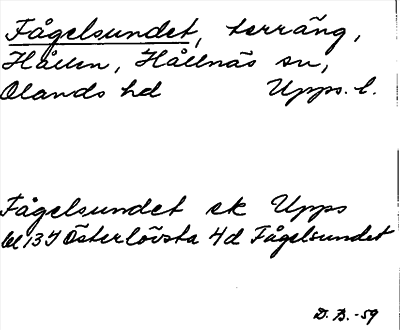 Fågelsundet, terräng,
Hållen, Hållnäs sn,
Olands hd Upps. l.
Fågelsundet ek Upps
bl 13I Österlövsta 4d Fågelsundet
D.B.-59